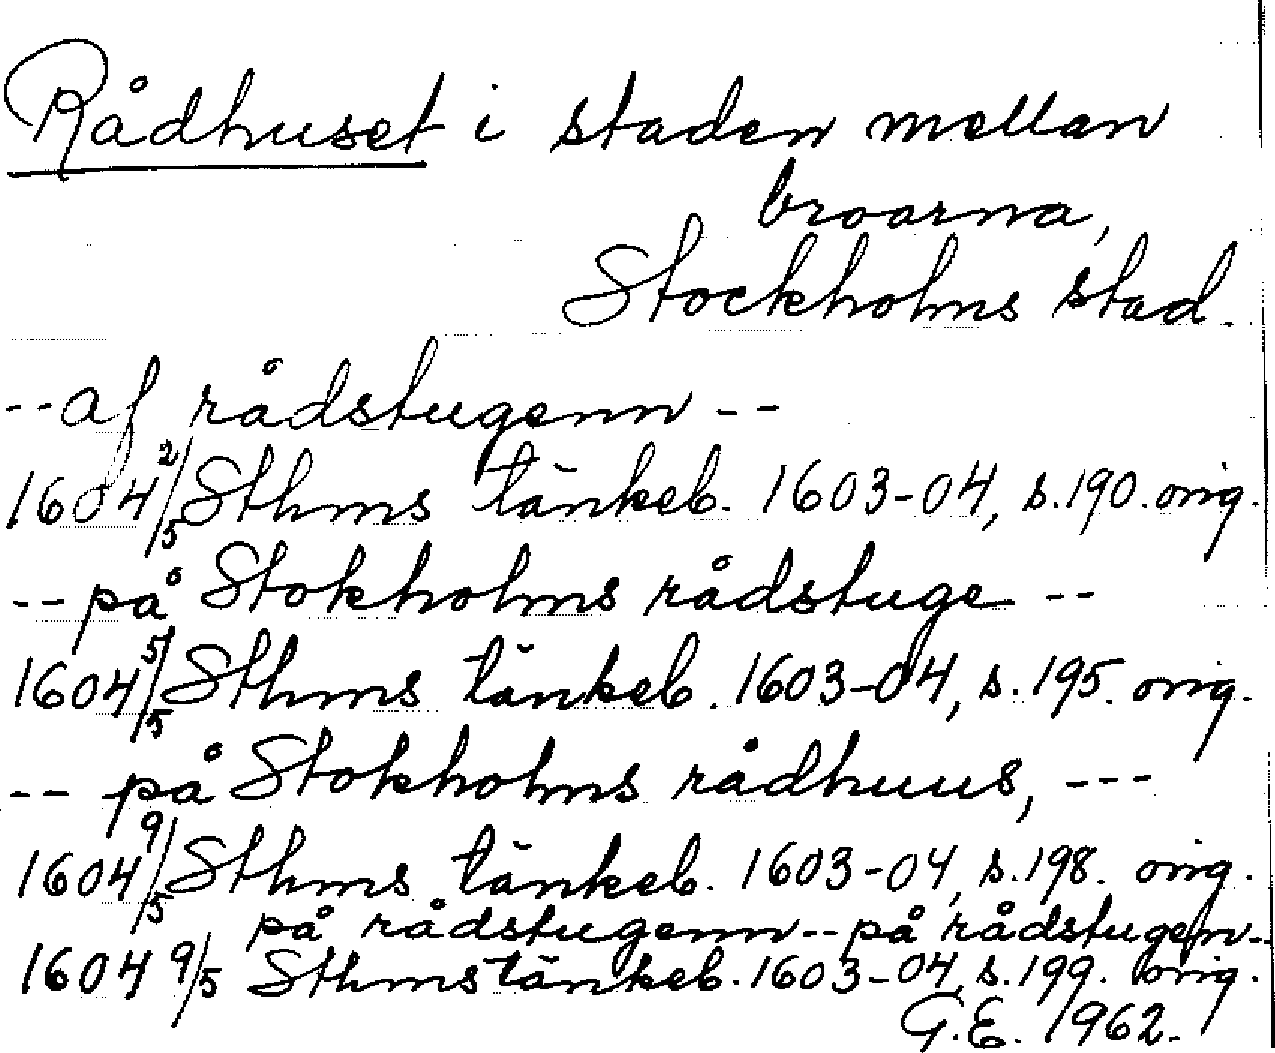 Rådhuset i staden mellan
broarna,
Stockholms stad.
--af rådstugenn--
1604 2/5 Sthms tänkeb. 1603-04, s.190. orig.
--på Stokholms rådstuge--
1604 5/5 Sthms tänkeb. 1603-04, s. 195. orig.
-- på Stokholms rådhuus, ---
1604 9/5 Sthms tänkeb. 1603-04, s.198. orig.
på rådstugenn--på rådstugen--
1604 9/5 Sthms tänkeb. 1603-04, s.199. orig.
G.E. 1962.